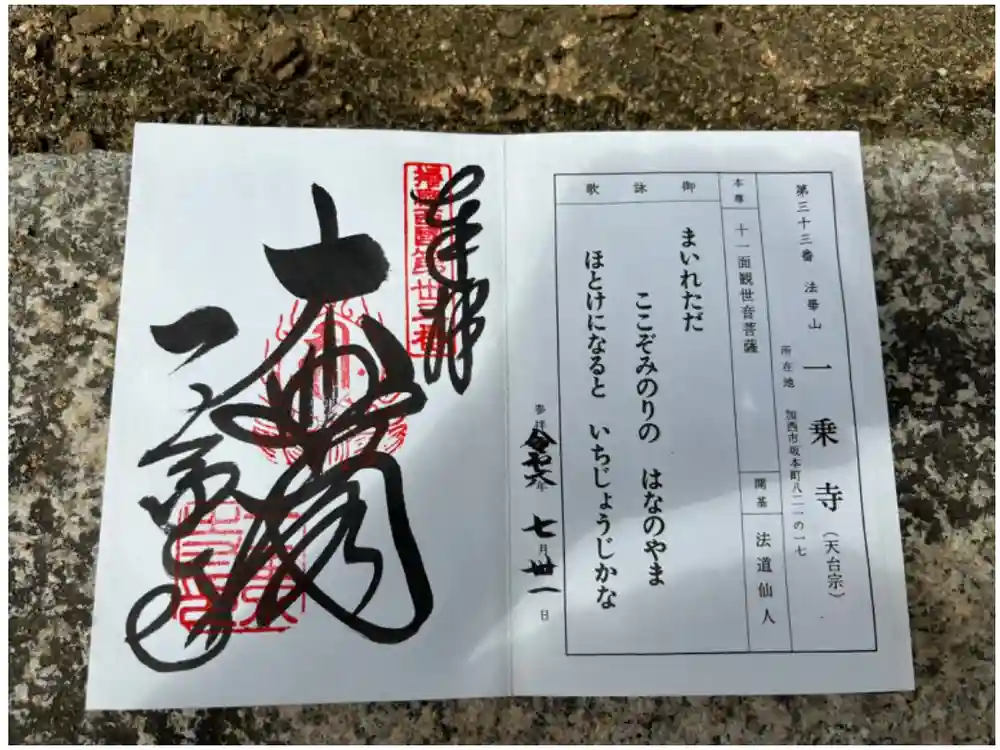 第三十三番 法華山 一乗寺(天台宗)
所在地 加西市坂本町八二一の一七
本尊 十一面観世音菩薩
開基 法道仙人
御詠歌
まいれただ
ここぞみのりの はなのやま
ほとけになると いちじょうじかな
参拝 令和六年 七月 卅一日
奉拝
播磨西国第卅三番
大悲閣
一乗寺